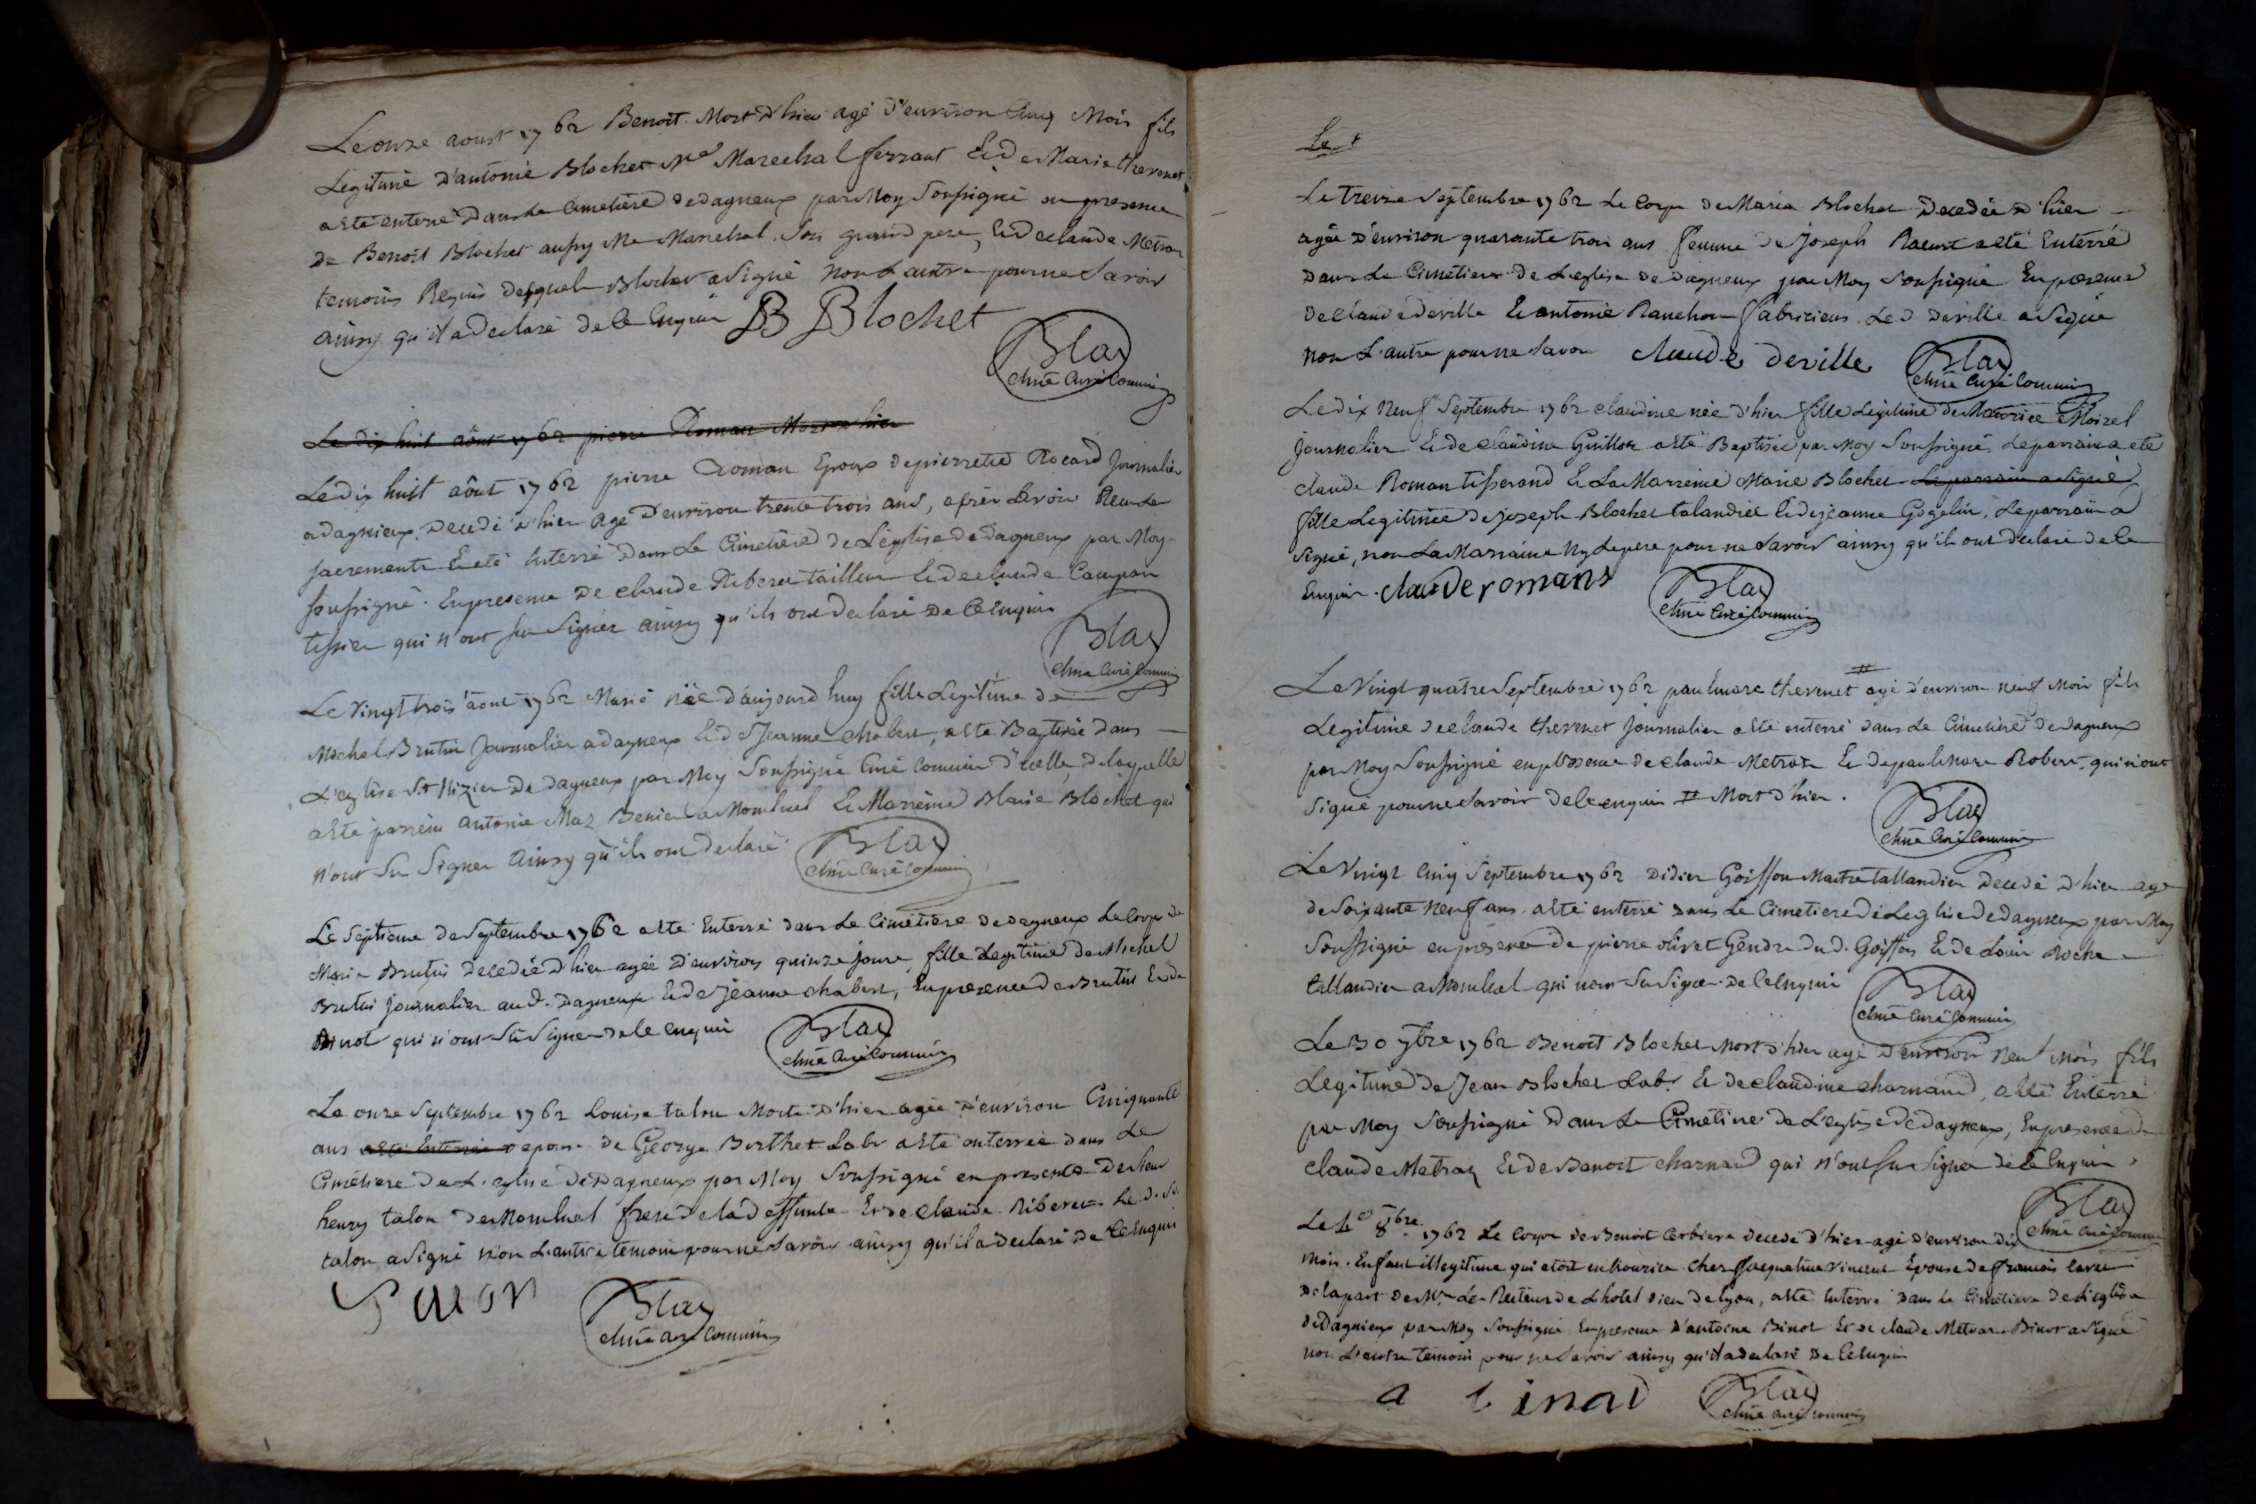 Le onze aoust 1762 Benoit Mort d'hier agé d'environ cinq Mois fils
Legitime d'antoine Blochet Me Marechal ferrant Et de Marie thevenet
a eté enterré dans le Cimetière de dagneux par Moy Soussigné en presence
de Benoit Blochet aussy Me Marechal Son grand pere, Et de claude Metras
temoins Requis desquels Blochet a Signé Non L'autre pour ne Savoir
ainsy qu'il a declaré de ce Enquis B Blochet
Blaz
chne Curé Commis
Le dix huit aôut 1762 pierre Roman Mort d'hier
Le dix huit aôut 1762 pierre Roman Epoux de pierrette Rocard Journalier
a dagnieux, Decedé d'hier agé d'environ trente trois ans, après avoir Reçu les
sacrements a eté Enterré dans Le Cimetière de L'eglise de Dagneux par Moy
soussigné. En presence de claude Riberet tailleur Et de claude Campan
tissier qui n'ont su signer ainsy qu'ils ont declaré de ce enquis
Blaz
chne Curé Commis
Le vingt trois aout 1762 Marie née d'aujourd'huy fille Legitime de
Michel Brutin Journalier a dagneux Et de Jeanne chabert, a eté Baptisée dans
L'eglise St Nizier de dagneux par Moy Soussigné Curé Commis d'icelle, de laquelle
a eté parrein antoine Maz Benier a Montluel Et Marreine Marie Blochet qui
n'ont Su Signer Ainsy qu'ils ont declaré.
Blaz
chne Curé Commis
Le Septieme de Septembre 1762 a eté Enterré dans Le Cimetière de dagneux Le Corps de
Marie Brutin decedée d'hier agée d'environ quinze jours, fille Legitime de Michel
Brutin Journalier au d. Dagneux Et de Jeanne chabert, En presence de Brutin Et de
Binot qui n'ont Su Signer de ce enquis
Blaz
chne Curé Commis
Le onze Septembre 1762 Louise talon Morte d'hier agée d'environ Cinquante
ans a eté Enterrée epouse de George Berthet Labr a eté enterrée dans Le
Cimetiere de L'eglise de Dagneux par Moy Soussigné en presence de Sieur
henry talon de Montluel frere de la deffunte Et de claude Riberet. Le d. Sr
talon a signé non L'autre temoin pour ne Savoir ainsy qu'il a declaré de ce Enquis
talon
Blaz
chne Curé Commis
Le t
Le treize Septembre 1762 Le Corps de Marie Blochet Decedée d'hier
agée d'environ quarante trois ans femme de Joseph a eté Enterré
dans Le Cimetiere de L'eglise de Dagneux par Moy Soussigné En presence
de claude deville Et antoine Ranchon fabriciens. Le d deville a Signé
non L'autre pour ne Savoir claude deville
Blaz
chne Curé Commis
Le dix Neuf Septembre 1762 claudine née d'hier fille Legitime de Maurice Moirel
Journalier Et de claudine Guillon a eté Baptisée par Moy Soussigné. Le parrain a eté
claude Roman tisserand Et La Marreine Marie Blochet Le parrain a signé
fille Legitime de joseph Blochet talandier Et de jeanne Gogelin, Le parrain a
signé, non La Marraine Ny Le pere pour ne Savoir ainsy qu'ils ont declaré de ce
Enquis. claude romans
Blaz
chne Curé Commis
Le Vingt quatre Septembre 1762 paul marc thevenet # agé d'environ neuf Mois fils
Legitime de claude thevenet Journalier a eté enterré dans Le Cimetière de dagneux
par Moy Soussigné en presence de claude Metras Et de paul Marc Robert, qui n'ont
Signé pour ne Savoir de ce enquis # Mort d'hier.
Blaz
chne Curé Commis
Le Vingt Cinq Septembre 1762 Didier Goiffon Maitre tallandier Decedé d'hier agé
de Soixante Neuf ans a eté enterré dans Le Cimetiere de L'eglise de dagneux par Moy
Soussigné en presence de pierre olivet Gendre du d. Goiffon Et de Louis Roche
tallandier a Montluel qui n'ont Su Signer. de ce Enquis
Blaz
chne Curé Commis
Le 30 7bre 1762 Benoit Blochet Mort d'hier agé d'environ Neuf Mois fils
Legitime de Jean Blochet Labr Et de claudine charnaud, a eté Enterré
par Moy Soussigné dans Le Cimetiere de L'eglise de Dagneux, En presence de
claude Metraz Et de Benoit charnaud qui n'ont su signer de ce Enquis.
Blaz
chne Curé Commis
Le 4e 8bre 1762 Le Corps de Benoit Corbiere decedé d'hier agé d'environ dix
Mois. Enfant illegitime qui etoit en Nourice chez Jacqueline vincent Epouse de francois
de la part de Mrs Les Recteurs de L'hotel Dieu de Lyon, a eté Enterré dans le Cimetiere de L'eglise
de Dagnieux par Moy Soussigné En presence d'antoine Binot Et de claude Metras. Binot a signé
non L'autre temoin pour ne Savoir ainsy qu'il a declaré de ce Enquis
a binot
Blaz
chne Curé Commis